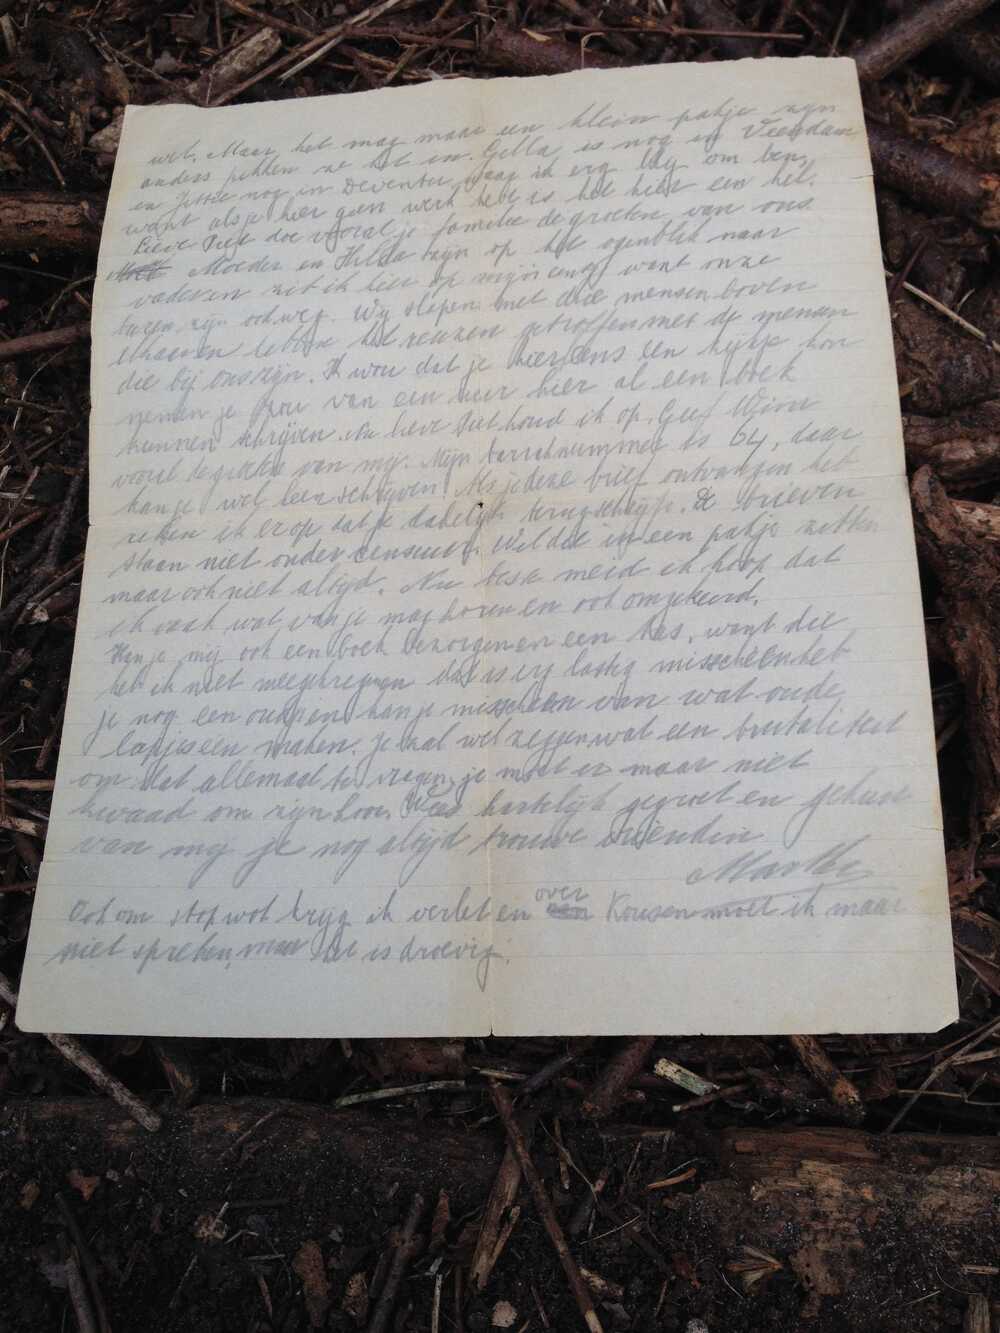 wel. Maar het mag maar een klein pakje zijn
anders pikken ze het in. Gella is nog in Veendam
en Jettie nog in Deventer, waar ik erg blij om ben,
want als je hier geen werk hebt is het hier een hel.
Lieve Piet doe vooral je familie de groeten van ons
Moeder en Hilda zijn op het ogenblik naar
vader en zit ik hier op mijn eng want onze
buren zijn ook weg. Wij slapen met drie mensen boven
elkaar en hebben het reuzen getroffen met de mensen
die bij ons zijn. Ik wou dat je hier eens een kijkje kon
nemen je zou van een uur hier al een boek
kunnen schrijven. Nu lieve Piet houd ik op. Geef Wim
vooral de groeten van mij. Mijn baraknummer is 64, daar
kan je wel heen schrijven. Als je deze brief ontvangen heb
reken ik er op dat je dadelijk terugschrijft. De brieven
staan niet onder censuur. Wel dit in een pakje zetten
maar ook niet altijd. Nu beste meid ik hoop dat
ik vaak wat van je mag horen en ook omgekeerd.
Kan je mij ook een boek bezorgen en een tas, want die
heb ik niet meegekregen dat is erg lastig misschien heb
je nog een oude en kan je misschien van wat oude
lapjes een maken. Je zal wel zeggen wat een brutaliteit
om dat allemaal te vragen, je moet er maar niet
kwaad om zijn hoor. Wees hartelijk gegroet en gekust
van mij je nog altijd trouwe vriendin
Martha
Ook om stopwol krijg ik verlet en over Kousen moet ik maar
niet spreken, maar dat is droevig.